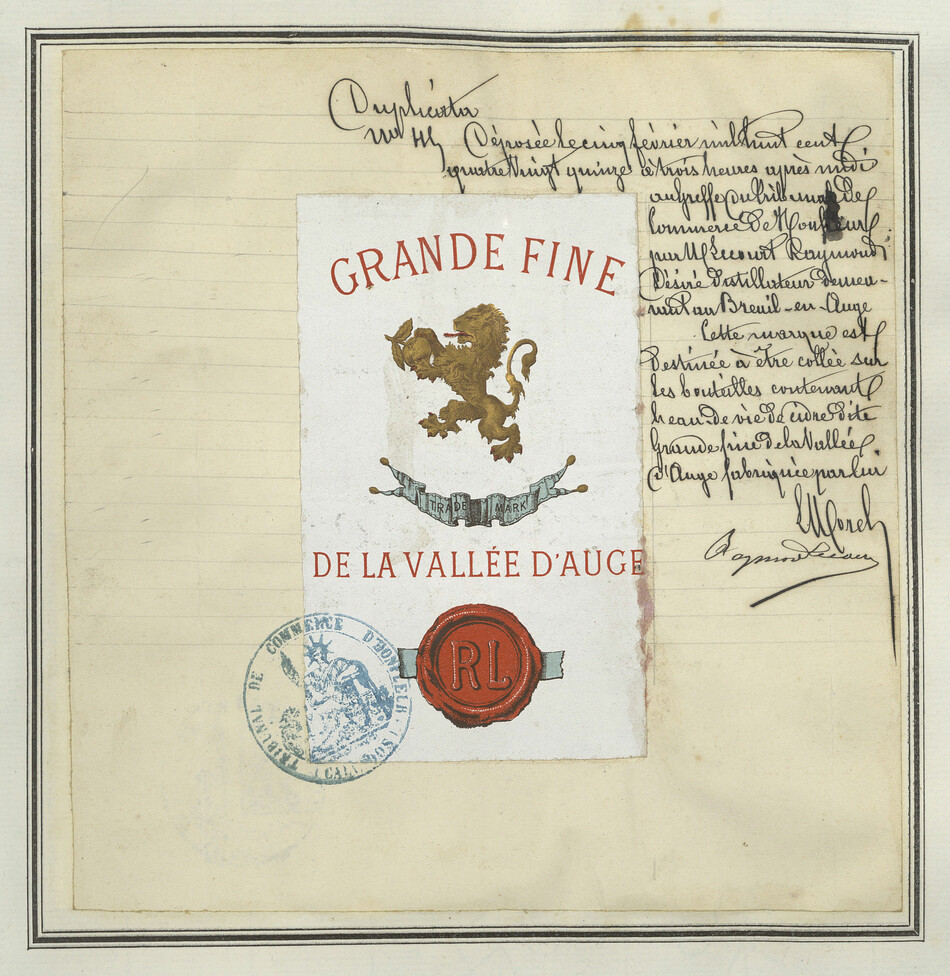 Duplicata
n° 44
Déposée le cinq février mil huit cent
quatre vingt quinze à trois heures après midi
au Greffe du tribunal de
Commerce de Honfleur
par M Lecourt Raymond
Désiré distillateur demeu-
rant au Breuil-en-Auge
Cette marque est
destinée à être collée sur
les bouteilles contenant
l'eau de vie de cidre dite
Grande fine de la Vallée
d'Auge fabriquée par lui
Raymond Lecourt
GRANDE FINE
TRADE MARK
DE LA VALLÉE D'AUGE
RL
TRIBUNAL DE COMMERCE D'HONFLEUR
(CALVADOS)